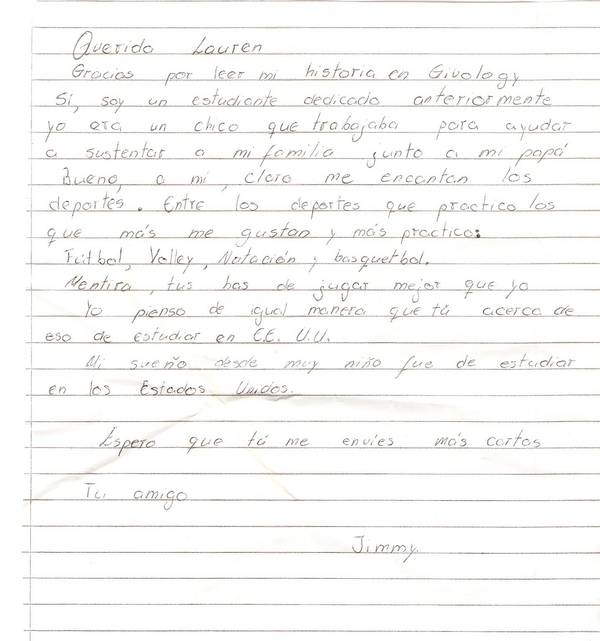 Querido Lauren
Gracias por leer mi historia en Givology
Sí, soy un estudiante dedicado anteriormente
yo era un chico que trabajaba para ayudar
a sustentar a mi familia junto a mi papá
Bueno, a mi, claro me encantan los
deportes. Entre los deportes que practico los
que más me gustan y más practico:
Fútbol, Volley, Natación y basquetbol.
Mentira, tus has de jugar mejor que yo
Yo pienso de igual manera que tú acerca de
eso de estudiar en EE. U.U.
Mi sueño desde muy niño fue de estudiar
en los Estados Unidos.
Espero que tú me envies más cartas
Tu amigo
Jimmy.